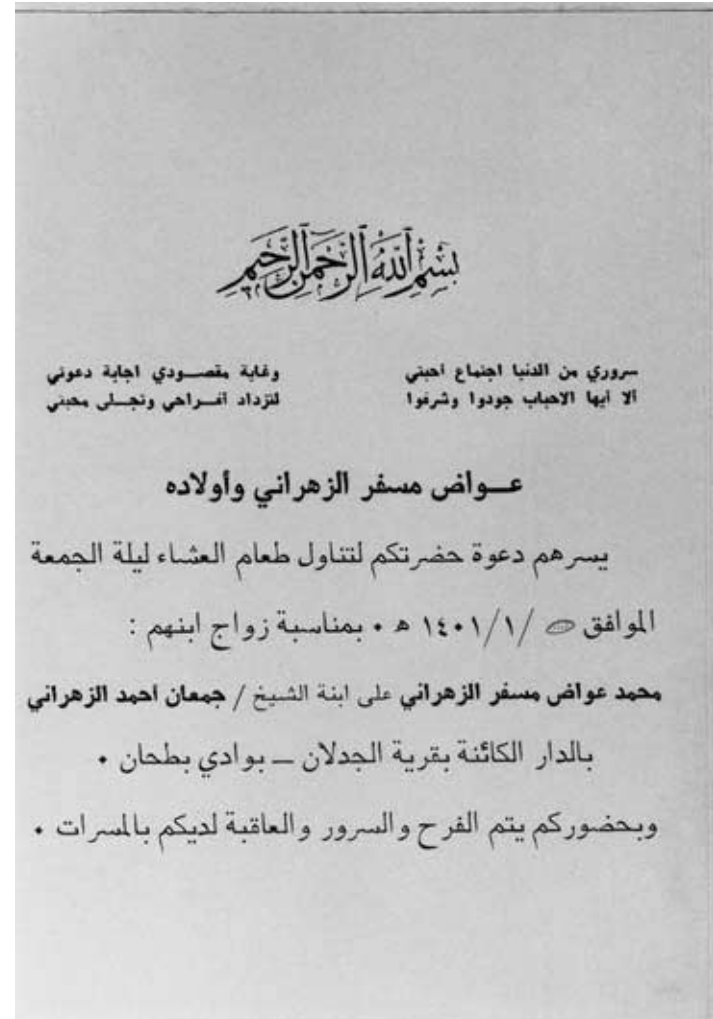 بسم الله الرحمن الرحيم
سروري من الدنيا اجتماع أحبتي وغاية مقصـــودي اجابة دعوتي
ألا أيها الاحباب جودوا وشرفوا لتزداد أفـــراحي وتجـــلى محبتي
عـــواض مسفر الزهراني وأولاده
يسرهم دعوة حضرتكم لتناول طعام العشاء ليلة الجمعة
الموافق / ١ / ١٤٠١ هـ ٠ بمناسبة زواج ابنهم :
محمد عواض مسفر الزهراني على ابنة الشيخ / جمعان احمد الزهراني
بالدار الكائنة بقرية الجدلان ــ بوادي بطحان ٠
وبحضوركم يتم الفرح والسرور والعاقبة لديكم بالمسرات ٠